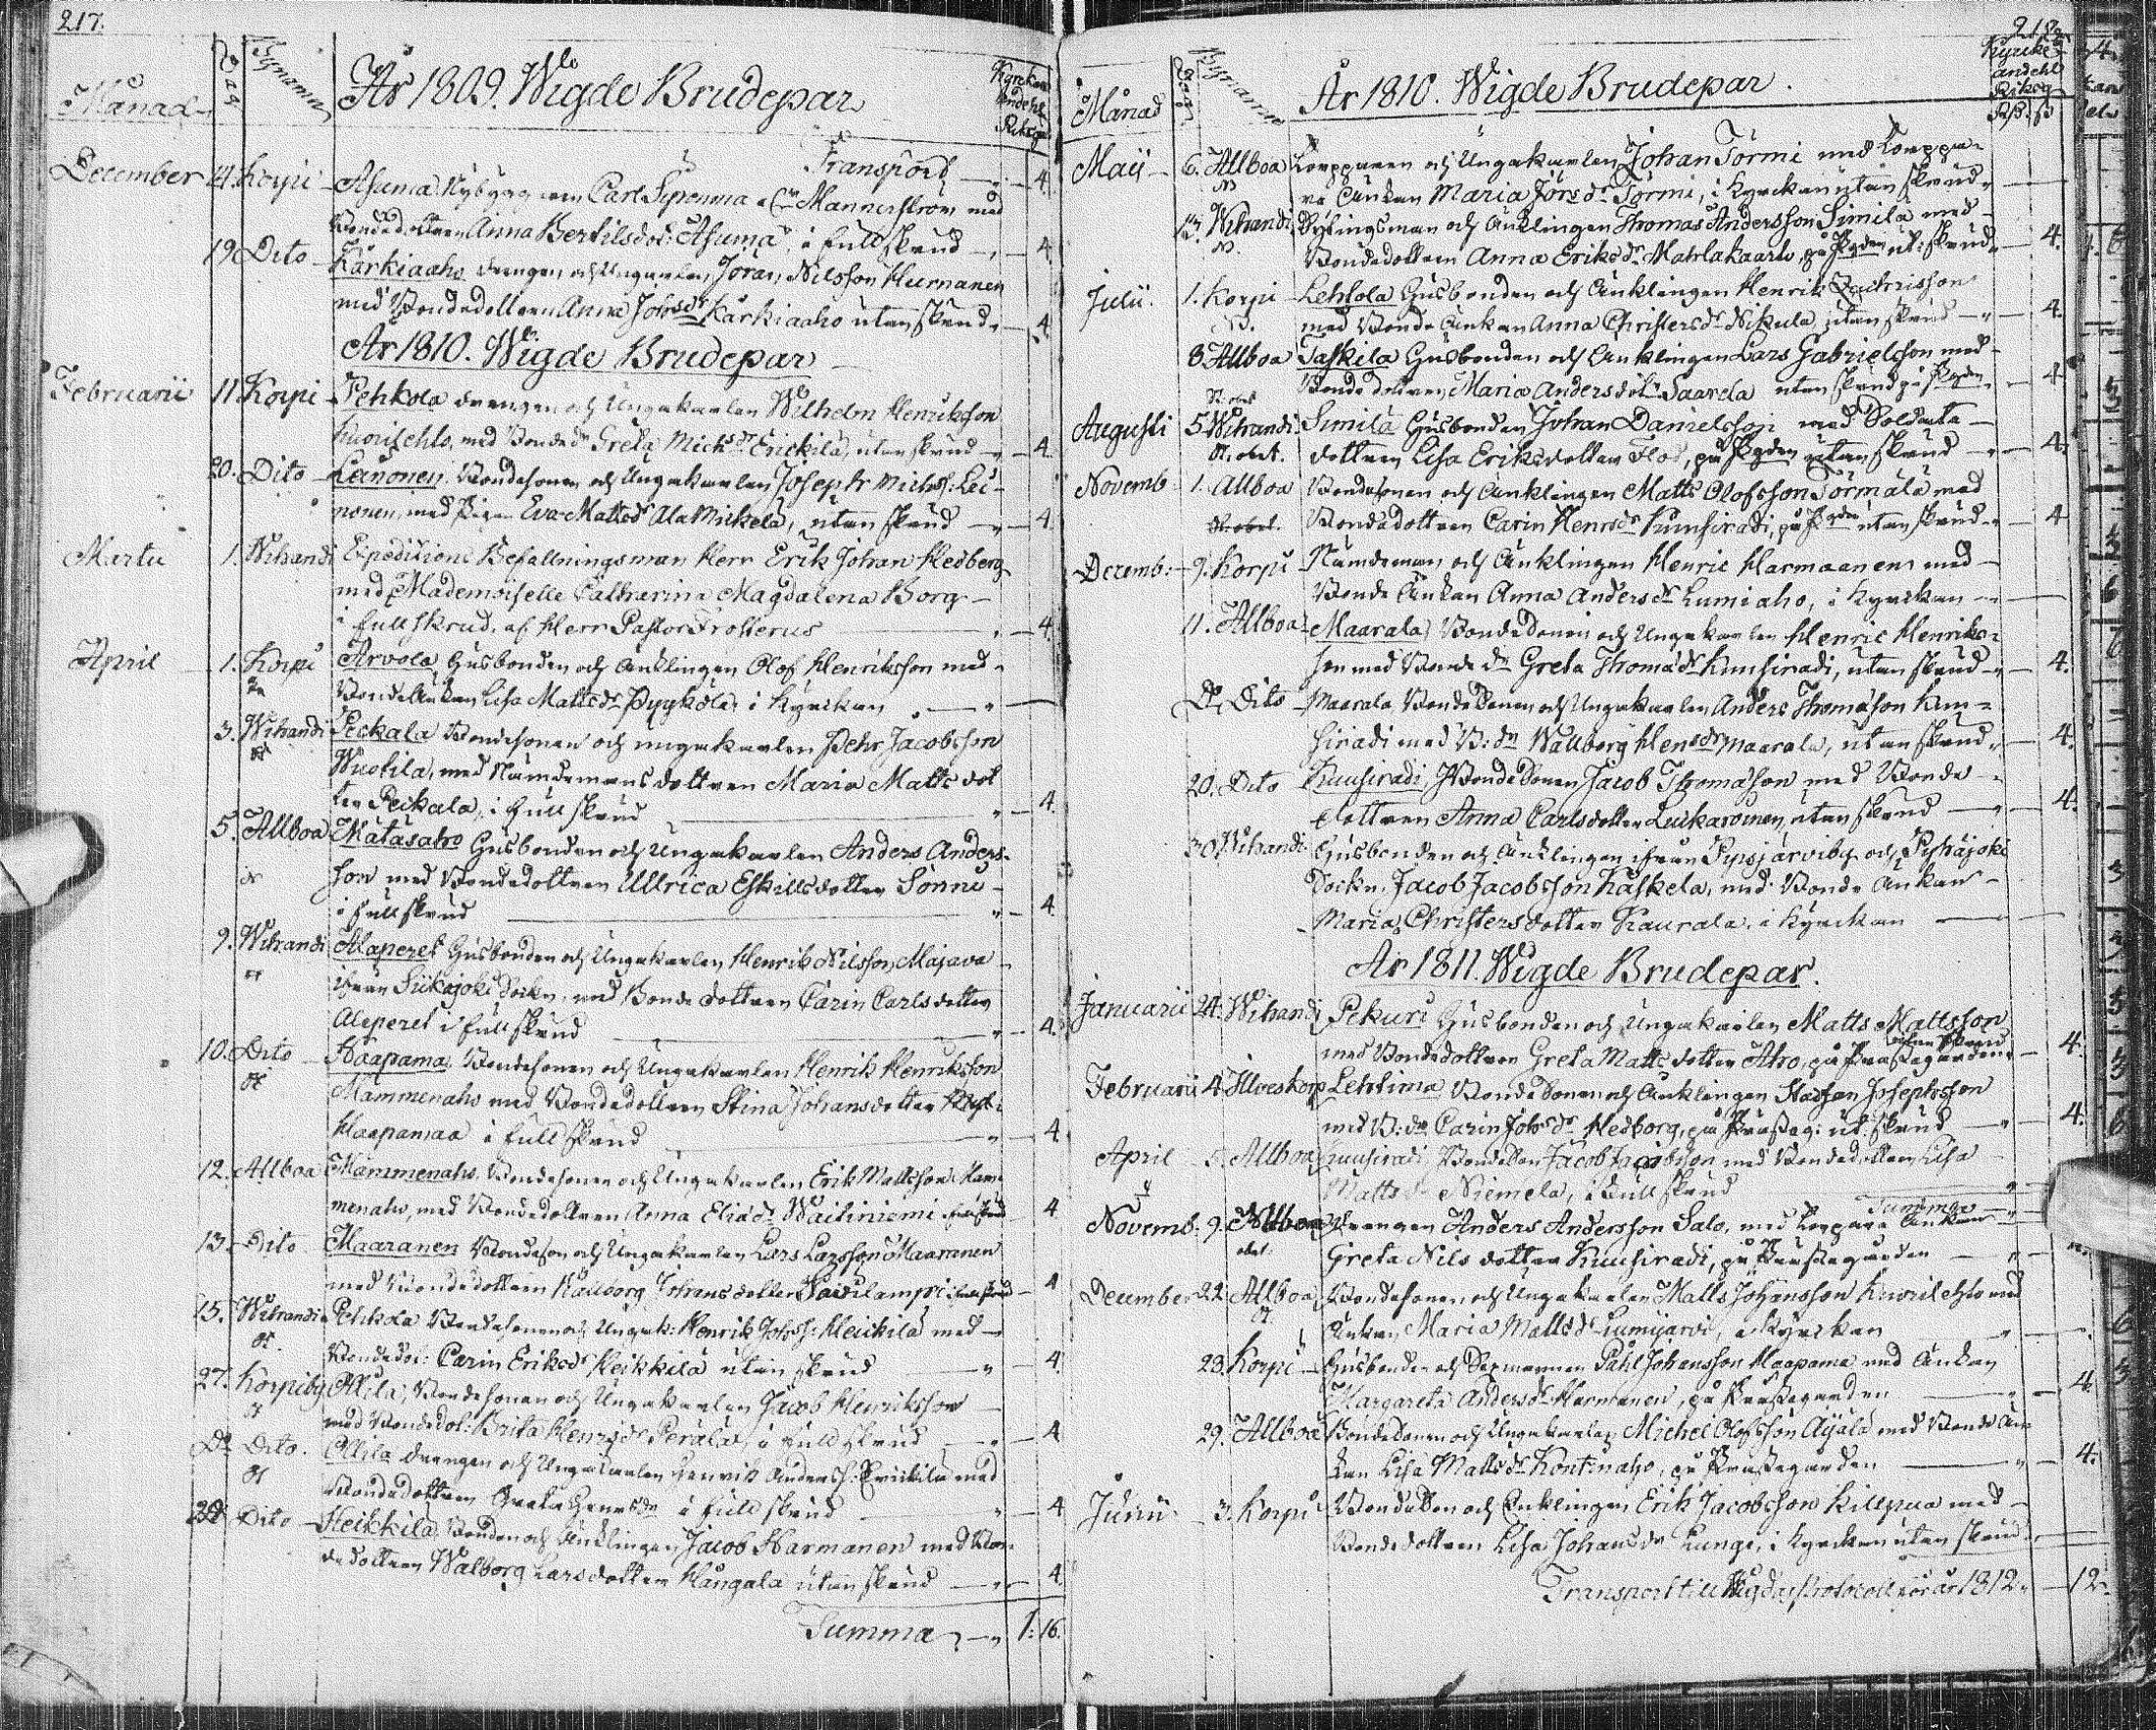 217.
Månad
Dag
Bynamn
År 1809. Wigde Brudepar
Kyrkans
Andehl
Riksg
Transport — 4.
December 4. Korpi Asuma, Nybygg Carl Sipenma Mannerström med
Bondedottren Anna Bertilsdot: Asuma i full skrud — 4.
19. Dito Karkiaaho drengen och Ungkarlen Jöran Nilsson Hurnanen
med Bondedottren Anna Johsdr Karkiaaho utan skrud — 4.
År 1810. Wigde Brudepar
Februarii 11. Korpi Pehkola drengen och Ungakarlen Wilhelm Henriksson
Kuorilehto, med Bonde dr Greta Michsdr Erickilä, utan skrud — 4.
20. Dito Leinonen Bondesonen och Ungakarlen Joseph Michss: Lei-
nonen, med Pigan Eva Mattsdr Ala Mickelä, utan skrud — 4.
Martii 1. Wihandi Expeditions Befallningsman Herr Erik Johan Hedberg
med Mademoiselle Catharina Magdalena Borg
i full skrud, af Herr Pastor Frosterus — 4.
April 1. Korpi Arvola Husbonden och Änklingen Olof Henriksson med
Bonde Änkan Lisa Mattsdr Pyykölä i Kyrckan —
3. Wihandi Peckala Bondesonen och ungakarlen Pehr Jacobsson
Wuolila, med Nämdemans dottren Maria Matts dot
ter Peckala, i full skrud — 4.
5. Allboa Matasaho Husbonden och Ungakarlen Anders Anders-
son med Bondedottren Ullrica Eskillsdotter Sonni
i full skrud — 4.
9. Wihandi Alaperet Husbonden och Ungakarlen Henrik Nilsson Majava
ifrån Siikajoki Sockn, med Bonde dottren Carin Carlsdotter
Aleperet i full skrud — 4.
10. Dito Haapama, Bondesonen och Ungakarlen Henrik Henriksson
Mammenaho med Bondedottren Stina Johansdotter
Haapamaa i full skrud — 4.
12. Allboa Mammenaho, Bondesonen och Ungakarlen Erik Mattsson Mam-
menaho, med Bondedottren Anna Eliædr Waitiniemi i full skrud 4
13. Dito Maaranen Bondeson och Ungakarlen Lars Larsson Maaranen
med Bondedottren Wallborg Johansdotter Savilampi i full skrud 4
15. Wihandi Pehkola Bondesonen och Ungak: Henrik Johss: Heickilä med
Bondedot: Carin Eriksdr Heikkilä utan skrud — 4.
27. Korpiby Ollila, Bondesonen och Ungakarlen Jacob Henriksson
med Bondedot: Brita Henrsdr Perälä, i full skrud — 4
Do Dito. Ollila drengen och Ungakarlen Henrik Anderss: Erickilä med
Bondedottren Greta Henrsdr i full skrud — 4
Dito Heikkilä Bonden och Änklingen Jacob Harmanen med Bon-
dedottren Walborg Larsdotter Hangala utan skrud — 4.
Summa — 1: 16.
Månad
Dag
Bynamn
År 1810. Wigde Brudepar.
Kyrckes
andehl
Riksg
Maii 6. Allboa Torpparen och Ungakarlen Johan Törmi med Torppa-
re Änkan Maria Jörsdr Törmi, i Kyrckan utan skrud —
13. Wihandi Änklingen Thomas Andersson Similä med
Bondedottren Anna Eriksdr Mattlakaarto, på Pgden ut: skrud — 4.
Julii. 1. Korpi Lehtola Husbonden och Änklingen Henrik Zachrisson
med Bonde Änkan Anna Christersdr Nikula utan skrud — 4.
8. Allboa Taskila Husbonden och Änklingen Lars Gabrielsson med
Bonde dottren Maria Andersdotr Saarela utan skrud på Pgden — 4
Augusti 5. Wihandi Similä Husbonden Johan Danielsson med Soldate
dottren Lisa Eriksdotter Flod, på Pgden utan skrud — 4.
Novemb. 1. Allboa Bondesonen och Änklingen Matts Olofsson Törmälä med
Bondedottren Carin Henrsdr Kuusiradi, på Pgden utan skrud — 4
Decemb: 9. Korpi Nämdeman och Änklingen Henric Harmaanen med
Bonde Änkan Anna Andersdr Lumiaho, i Kyrckan —
11. Allboa Maarala Bondesonen och Ungakarlen Henric Henriks-
son med Bonde dr Greta Thomædr Kuusiradi, utan skrud — 4.
Do Dito Maarala Bondesonen och Ungakarlen Anders Thomasson Kuu-
siradi med B: dr Wallborg Henrsdr Maarala, utan skrud — 4.
20. Dito Kuusiradi, Bondesonen Jacob Thomasson med Bonde
dottren Anna Carlsdotter Luikaroinen utan skrud — 4.
30. Wihandi Husbonden och Änklingen ifrån Pyysjärviby och Pyhäjoki
Sockn. Jacob Jacobsson Kaskela, med Bonde Änkan
Maria Christersdotter Kaurala, i Kyrckan —
År 1811. Wigde Brudepar.
Januarii 24. Wihandi Pekuri Husbonden och Ungakarlen Matts Mattsson
med Bondedottren Greta Matts dotter Aho, på Prästegården utan skrud — 4.
Februarii 4. Ilveskorp Lehtima Bonde Sonen och Änklingen Staffan Josephsson
med B: dr Carin Johsdr Hedborg, på Prästeg: ut: skrud — 4.
April Allboa Kuusiradi Bondeson Jacob Jacobsson med Bondedottren Lisa
Mattsdr Niemelä, i Full skrud —
Summa
Novemb: 9. Allboa Drengen Anders Andersson Salo, med Torpare Änkan
Greta Nils dotter Kuusiradi, på Prästegården —
December 22. Allboa Bondesonen och Ungakarlen Matts Johansson Kuorilehto med
Änkan Maria Mattsdr Lumijärvi, i Kyrckan —
23. Korpi Husbonden och Sexmannen Påhl Johansson Haapama med Änkan
Margareta Andersdr Harmanen, på Prästegården — 4.
29. Allboa Bondesonen och Ungakarlen Michel Olofsson Äijälä med Bonde Än-
kan Lisa Mattsdr Kontinaho, på Prästegården — 4.
Junii 3. Korpi Bondeson och Änklingen Erik Jacobsson Killpua med
Bondedottren Lisa Johansdr Lunge, i Kyrckan utan skrud —
Transport till Wigde Protocoll för år 1812. — 12.